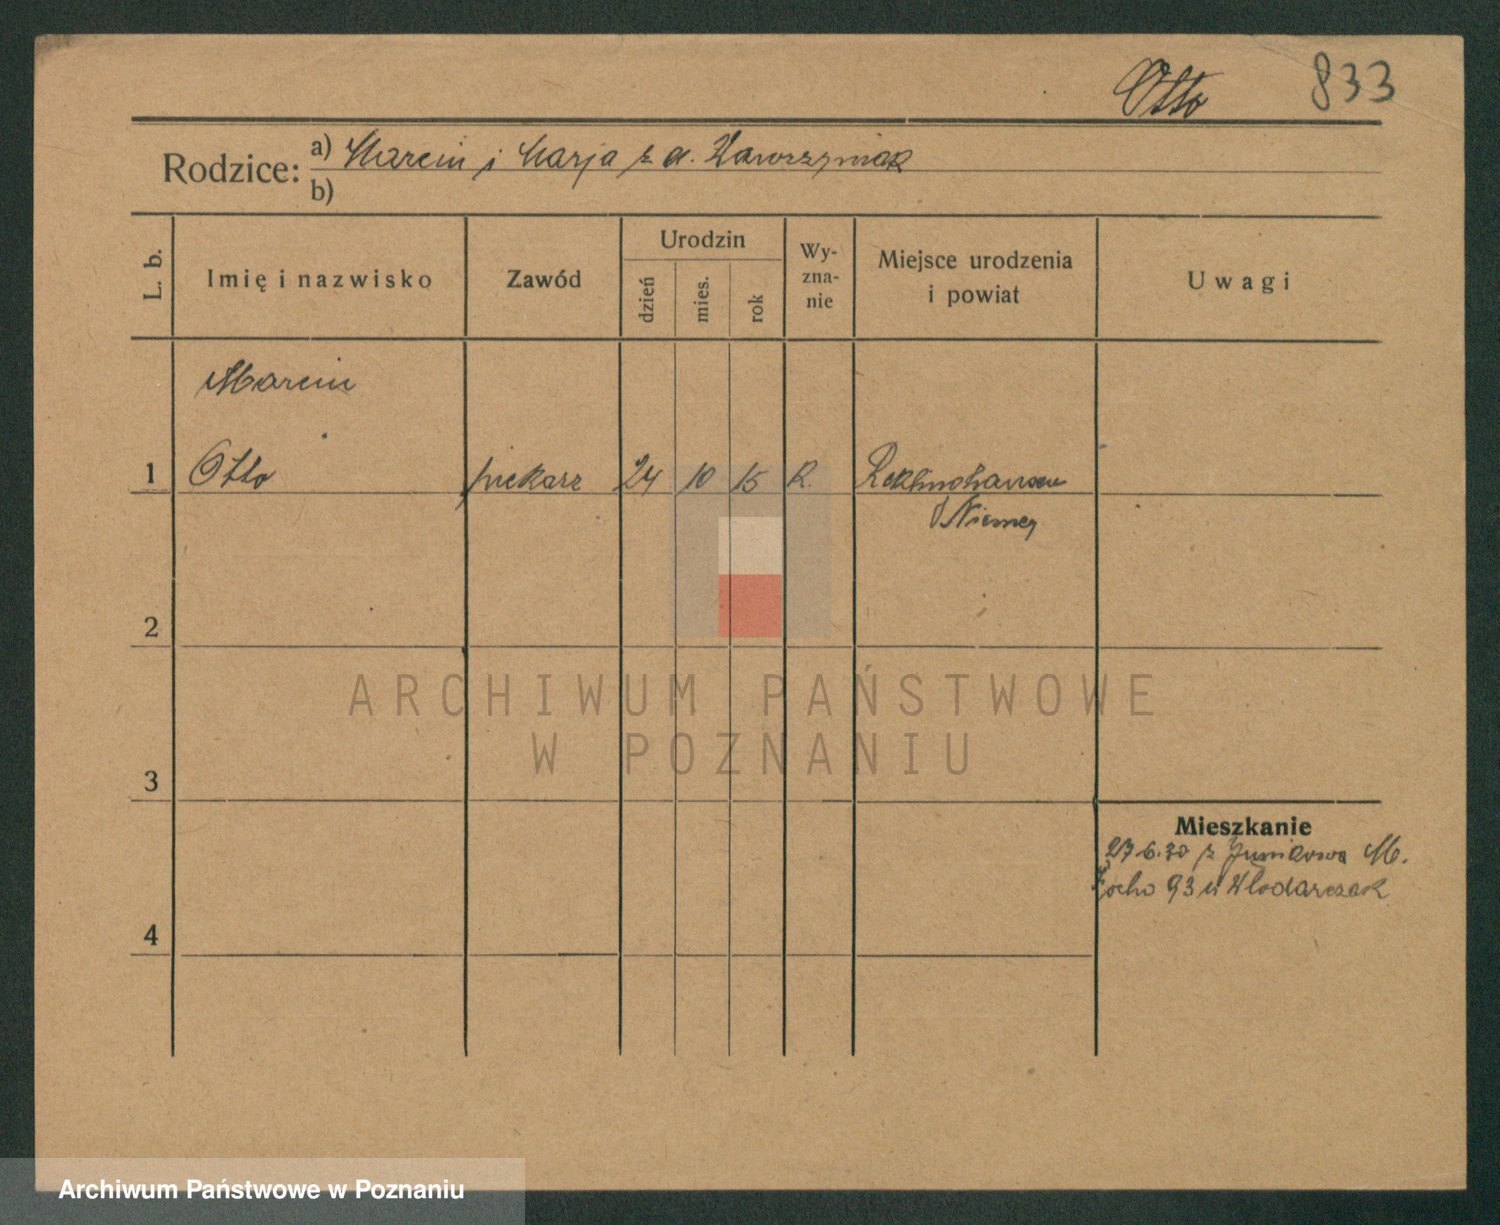 Otto 833
Rodzice: a) Marcin i Marja z d. Wawrzyniak
b)
L. b. Imię i nazwisko Zawód Urodzin dzień mies. rok Wyzna-nie Miejsce urodzenia i powiat Uwagi
Marcin
1 Otto piekarz 24 10 15 R. Reklinghausen
Niemcy
2
3
4
Mieszkanie
27 6.30 z Junikowa M.
Focha 93 u Włodarczak
ARCHIWUM PAŃSTWOWE
W POZNANIU
Archiwum Państwowe w Poznaniu